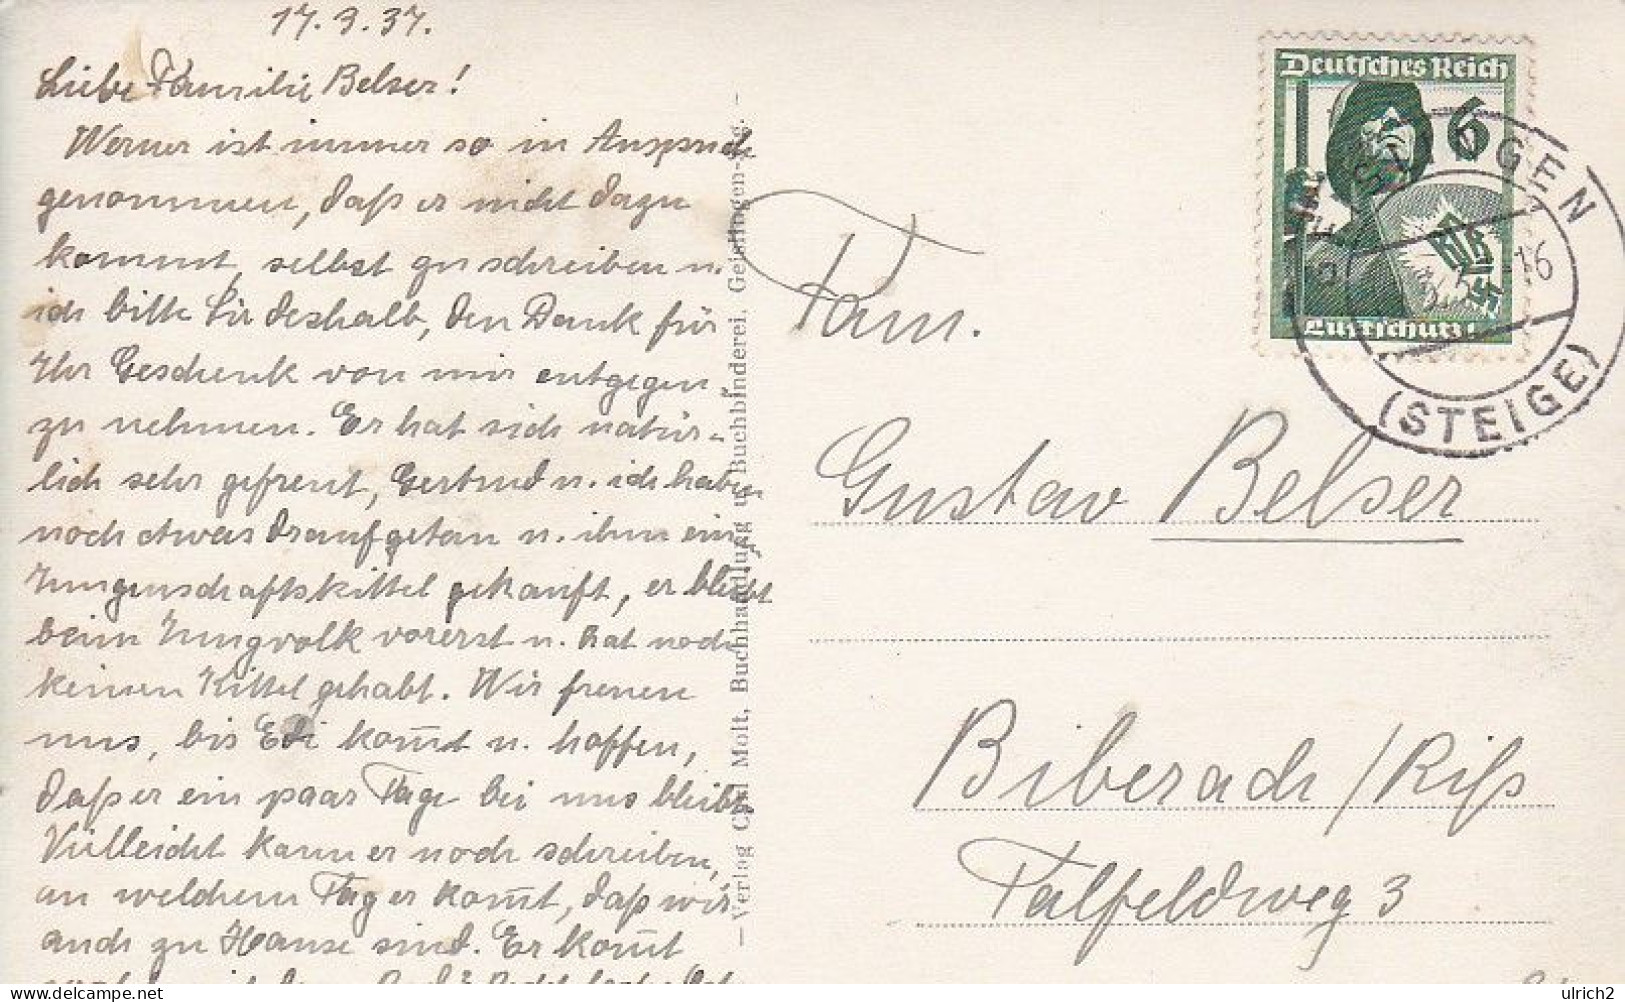 17.3.37.
Liebe Familie Belser!
Werner ist immer so in Anspruch
genommen, daß er nicht dazu
kommt, selbst zu schreiben u.
ich bitte Sie deshalb, den Dank für
Ihr Geschenk von mir entgegen-
zu nehmen. Er hat sich natür-
lich sehr gefreut, Gertrud u. ich haben
noch etwas draufgetan u. ihm ein
Jungenschaftskittel gekauft, er bleibt
beim Jungvolk vorerst u. hat noch
keinen Kittel gehabt. Wir freuen
uns, bis Edi kom̅t u. hoffen,
daß er ein paar Tage bei uns bleibt.
Vielleicht kann er noch schreiben,
an welchem Tag er kom̅t, daß wir
auch zu Hause sind. Er kom̅t
— Verlag Chr. Moll, Buchhandlung u. Buchbinderei, Geislingen-Stg. —
Deutsches Reich
6
Luftschutz!
GEISLINGEN
16
(STEIGE)
Fam.
Gustav Belser
Biberach/Riß
Talfeldweg 3
ulrich2